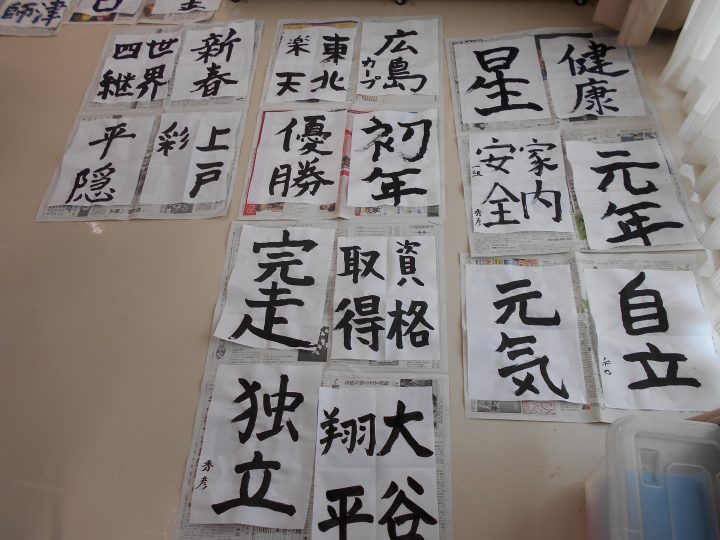 津
師
世界
四継
新春
東北
楽天
広島
カープ
星
健康
平隠
上戸
彩
優勝
初年
家内
安全
秀彦
元年
完走
資格
取得
元気
自立
独立
秀彦
大谷
翔平